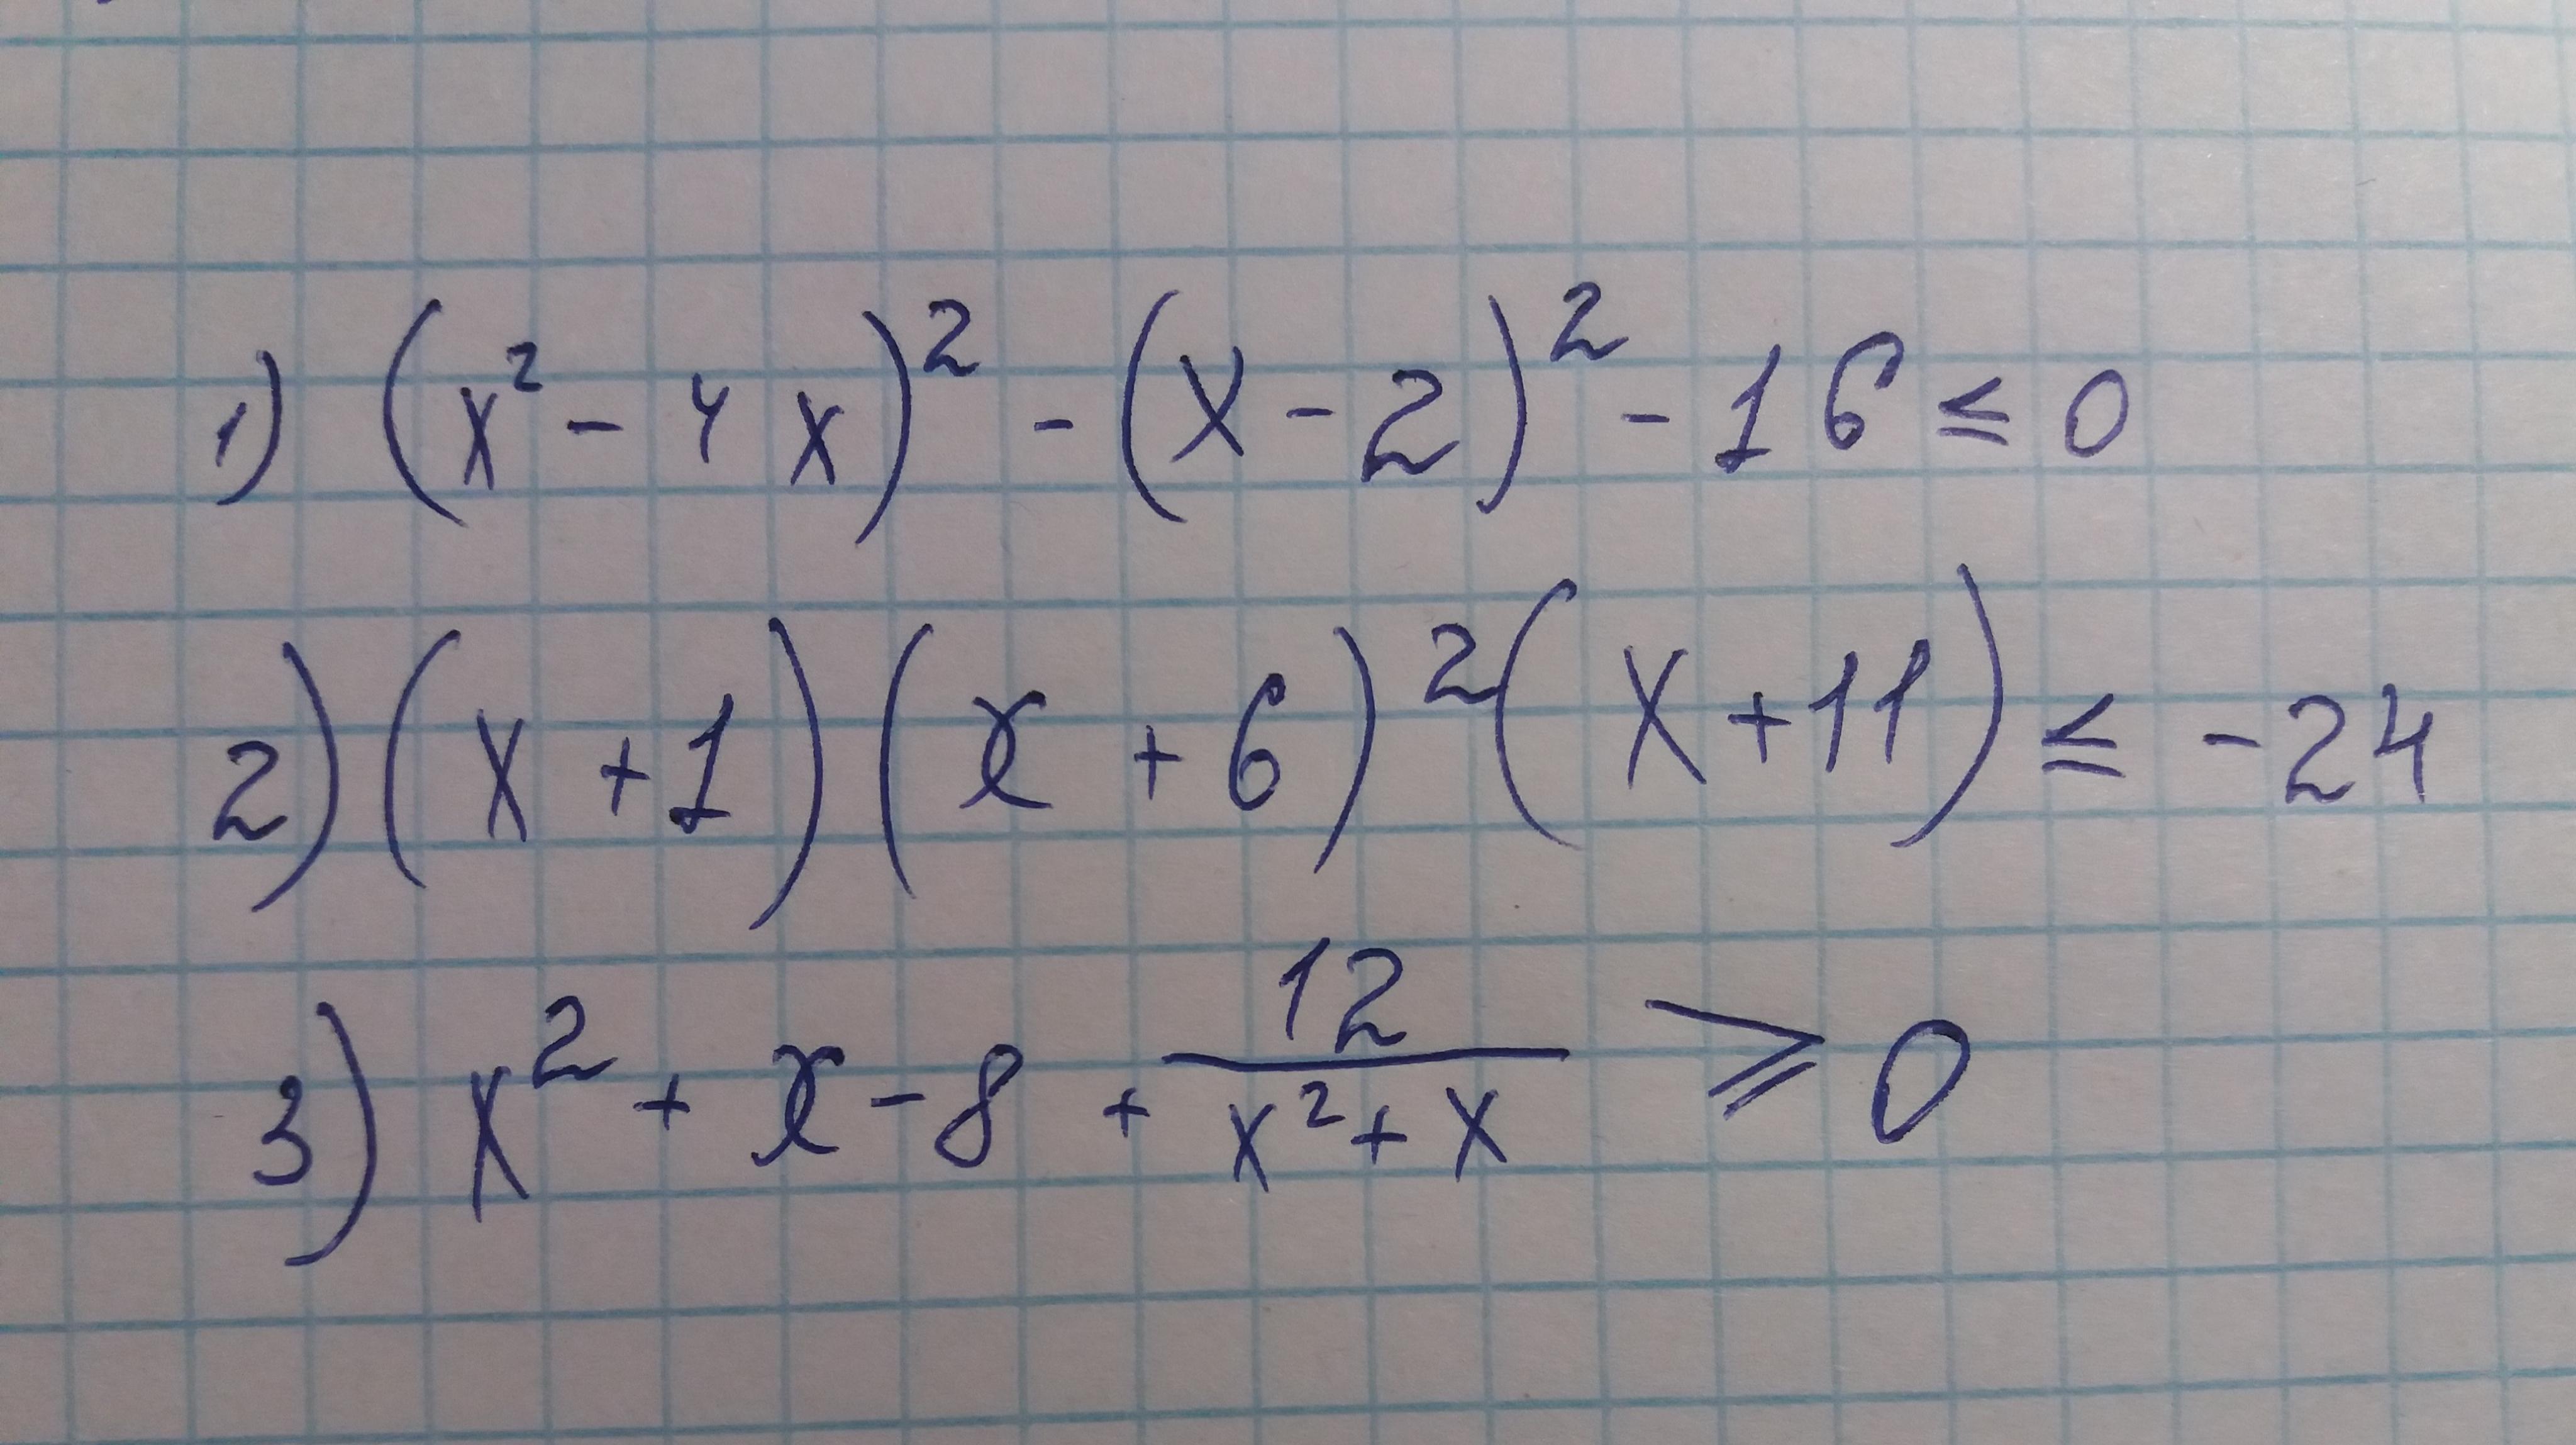 1) (x² - 4x)² - (x - 2)² - 16 ≤ 0
2) (x + 1)(x + 6)²(x + 11) ≤ -24
3) x² + x - 8 + 12/(x² + x) ≥ 0